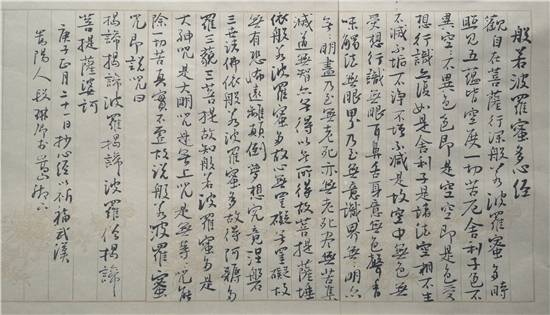 般若波羅蜜多心經
觀自在菩薩行深般若波羅蜜多時
照見五蘊皆空度一切苦厄舍利子色不
異空空不異色色即是空空即是色受
想行識亦復如是舍利子是諸法空相不生
不滅不垢不淨不增不減是故空中無色無
受想行識無眼耳鼻舌身意無色聲香
味觸法無眼界乃至無意識界無無明亦
無無明盡乃至無老死亦無老死盡無苦集
滅道無智亦無得以無所得故菩提薩埵
依般若波羅蜜多故心無罣礙無罣礙故
無有恐怖遠離顛倒夢想究竟涅槃
三世諸佛依般若波羅蜜多故得阿耨多
羅三藐三菩提故知般若波羅蜜多是
大神咒是大明咒是無上咒是無等等咒能
除一切苦真實不虛故說般若波羅蜜
咒即說咒曰
揭諦揭諦波羅揭諦波羅僧揭諦
菩提薩婆訶
庚子正月二十一日抄心經以祈福武漢
陽人段